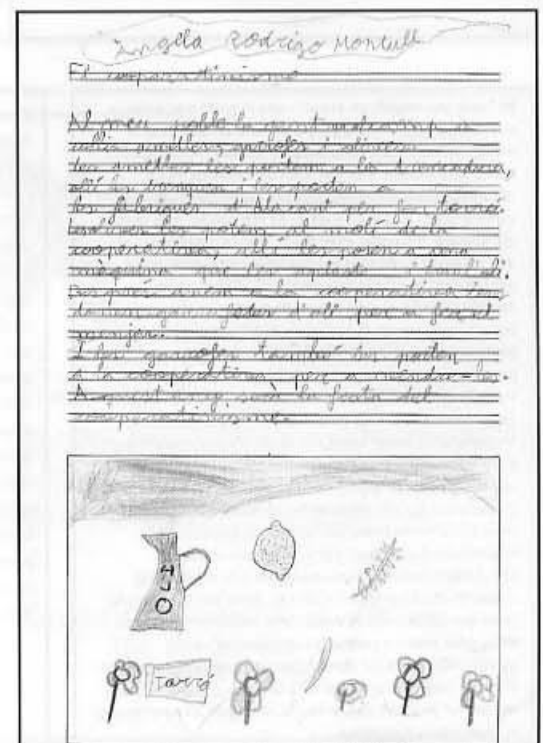 Àngela Rodrigo Montull
El cooperativisme
Al meu poble la gent
ametlers, garrofes i olives
les ametles les portem a la
allí les i les porten a
les fàbriques d'Alacant per fer torró.
les olives les portem al molí de la
cooperativa, allí les posen a una
màquina que les aplasta i fan l'oli.
Després anem a la cooperativa i ens
donen garrafetes d'oli per a fer el
menjar.
I les garrofes també les porten
a la cooperativa per a vendre-les.
Aquest any serà la festa del
cooperativisme.
torró